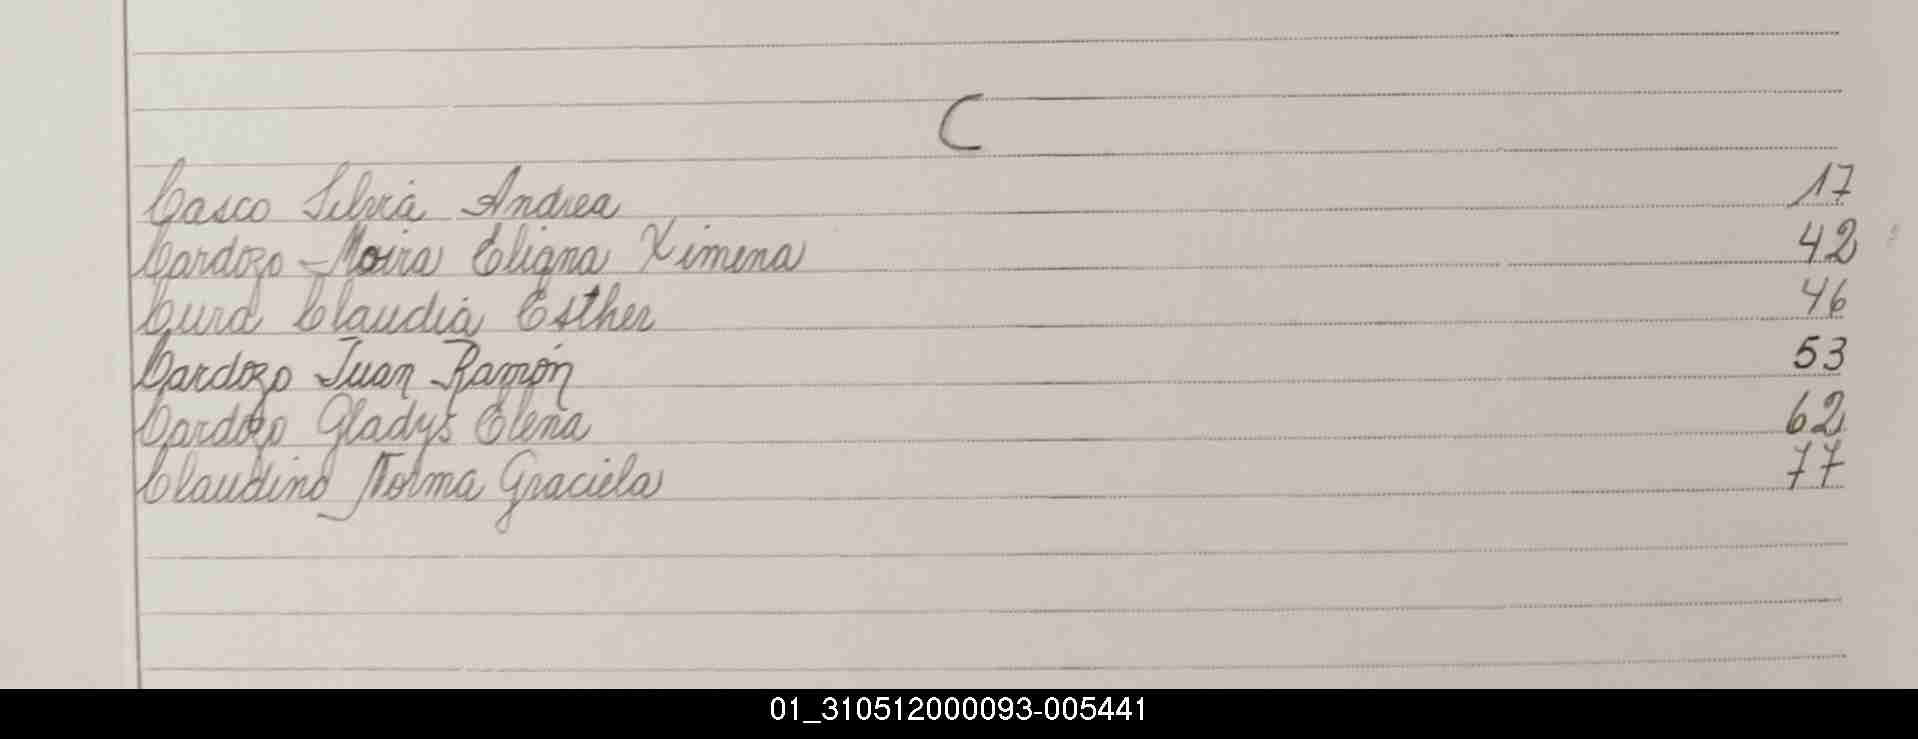 C
Casco Silvia Andrea 17
Cardozo Moira Eligna Ximena 42
Cura Claudia Esther 46
Cardozo Juan Ramón 53
Cardozo Gladys Elena 62
Claudino Norma Graciela 77
01_310512000093-005441